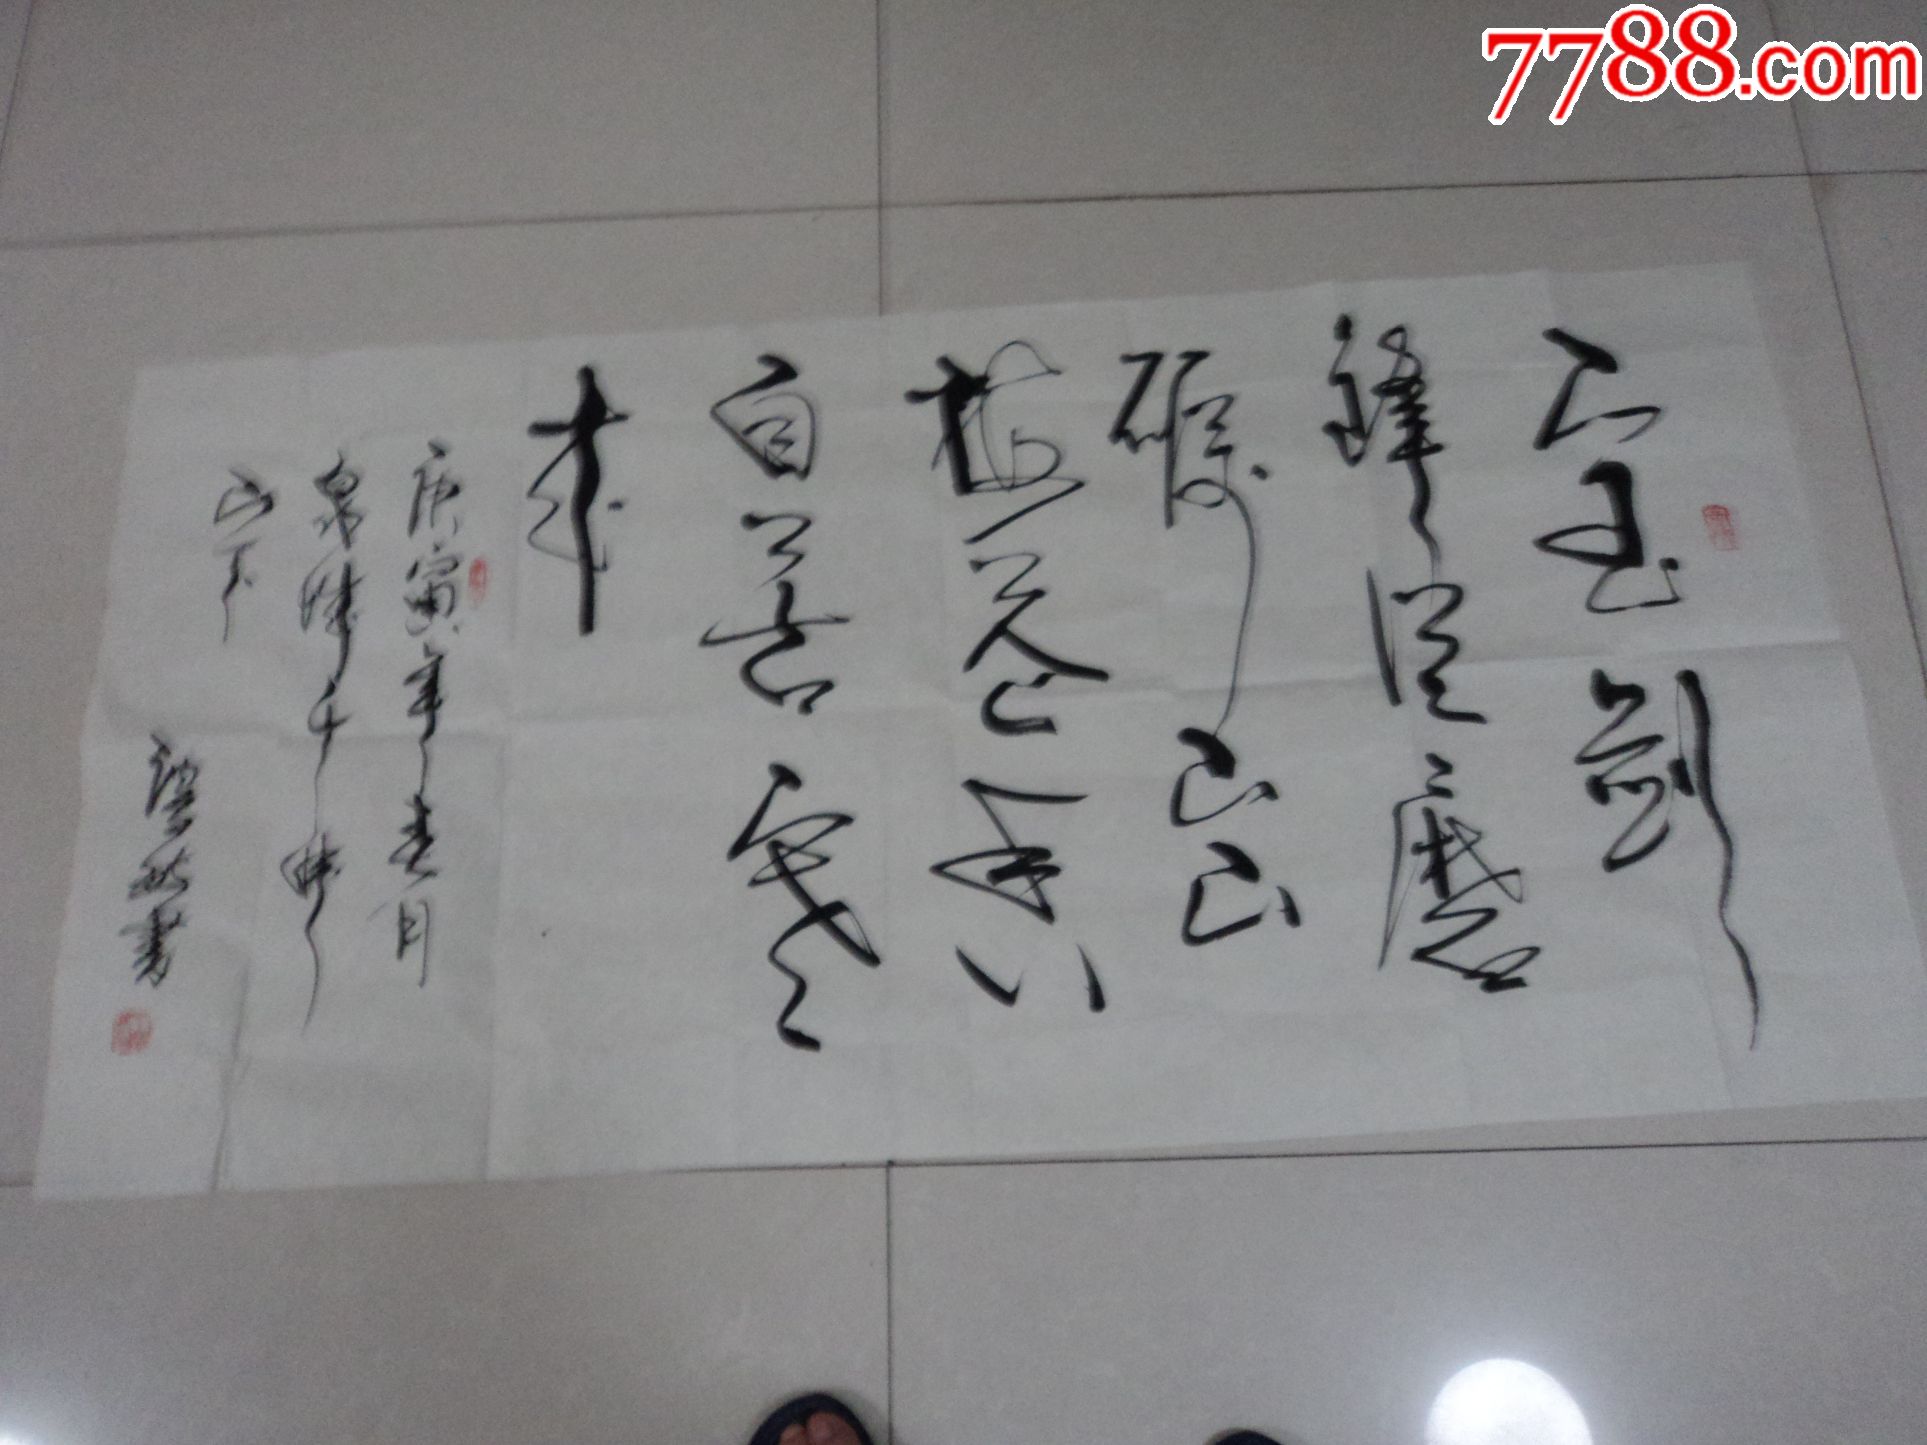 7788.com
宝剑
锋从磨
砺出
梅花香
自苦寒
来
庚寅年春月
泉城千佛
山下
书